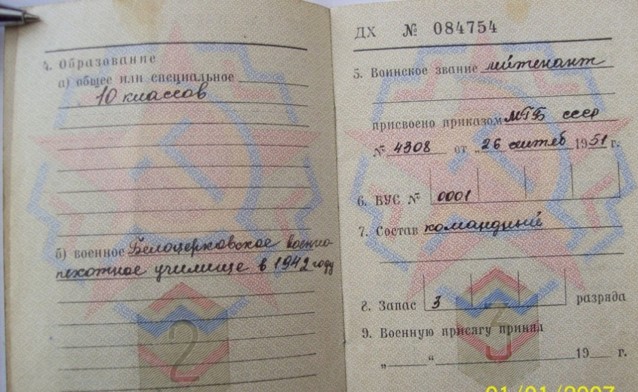 4. Образование
а) общее или специальное
10 классов
б) военное Белоцерковское военно
пехотное училище в 1942 году
2
ДХ № 084754
5. Воинское звание лейтенант
присвоено приказом МГБ ссср
№ 4308 от „26 сентяб 1951 г.
6. ВУС № 0001
7. Состав командный
8. Запас 3 разряда
9. Военную присягу принял
„ “ 19 г.
3
01/01/2007